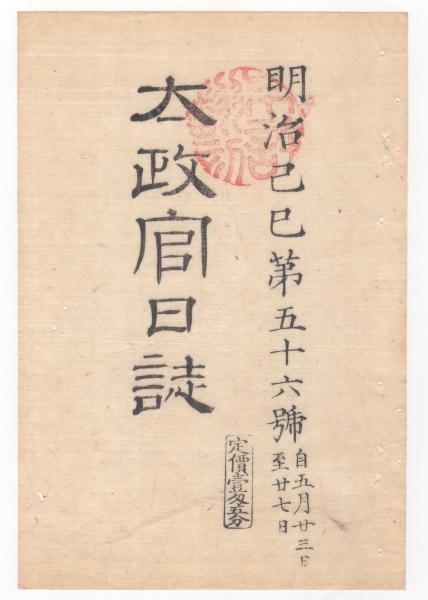 明治己巳第五十六號
自五月廿三日
至廿七日
太政官日誌
定價壹匁五分